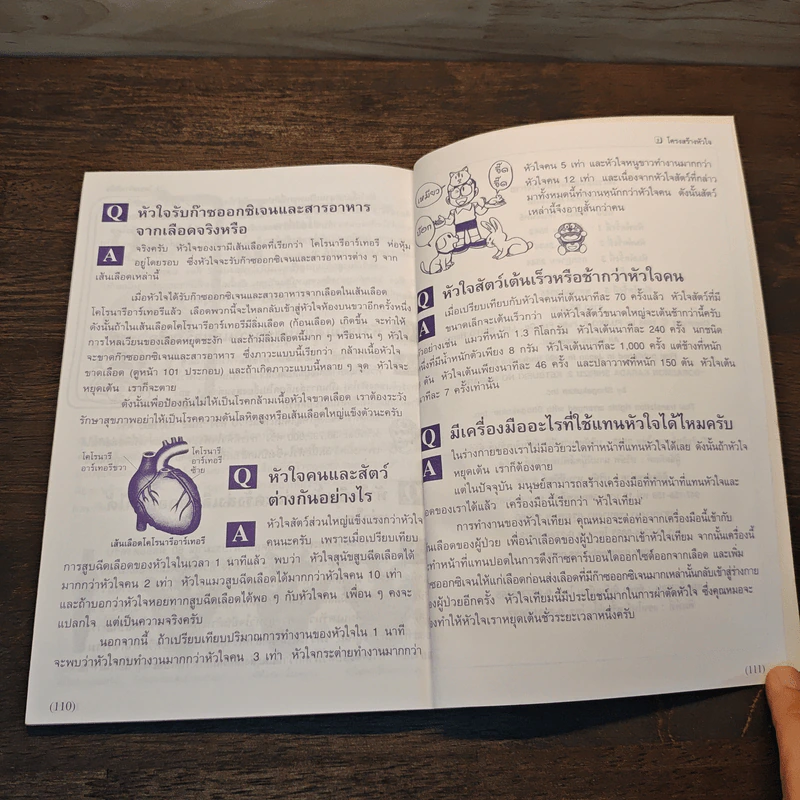 Q หัวใจรับก๊าซออกซิเจนและสารอาหาร
จากเลือดจริงหรือ
A จริงครับ หัวใจของเรามีเส้นเลือดที่เรียกว่า โคโรนารีอาร์เทอรี ห่อหุ้ม
อยู่โดยรอบ ซึ่งหัวใจจะรับก๊าซออกซิเจนและสารอาหารต่าง ๆ จาก
เส้นเลือดเหล่านี้
เมื่อหัวใจได้รับก๊าซออกซิเจนและสารอาหารจากเลือดในเส้นเลือด
โคโรนารีอาร์เทอรีแล้ว เลือดพวกนี้จะไหลกลับเข้าสู่หัวใจห้องบนขวาอีกครั้งหนึ่ง
ดังนั้นถ้าในเส้นเลือดโคโรนารีอาร์เทอรีมีลิ่มเลือด (ก้อนเลือด) เกิดขึ้น จะทำให้
การไหลเวียนของเลือดหยุดชะงัก และถ้ามีลิ่มเลือดนี้มาก ๆ หรือนาน ๆ หัวใจ
จะขาดก๊าซออกซิเจนและสารอาหาร ซึ่งภาวะแบบนี้เรียกว่า กล้ามเนื้อหัวใจ
ขาดเลือด (ดูหน้า 101 ประกอบ) และถ้าเกิดภาวะแบบนี้หลาย ๆ จุด หัวใจจะ
หยุดเต้น เราก็จะตาย
ดังนั้นเพื่อป้องกันไม่ให้เป็นโรคกล้ามเนื้อหัวใจขาดเลือด เราต้องระวัง
รักษาสุขภาพอย่าให้เป็นโรคความดันโลหิตสูงหรือเส้นเลือดใหญ่แข็งตัวนะครับ
โคโรนารี
อาร์เทอรีขวา
โคโรนารี
อาร์เทอรี
ซ้าย
เส้นเลือดโคโรนารีอาร์เทอรี
Q หัวใจคนและสัตว์
ต่างกันอย่างไร
A หัวใจสัตว์ส่วนใหญ่แข็งแรงกว่าหัวใจ
คนนะครับ เพราะเมื่อเปรียบเทียบ
การสูบฉีดเลือดของหัวใจในเวลา 1 นาทีแล้ว พบว่า หัวใจสุนัขสูบฉีดเลือดได้
มากกว่าหัวใจคน 2 เท่า หัวใจแมวสูบฉีดเลือดได้มากกว่าหัวใจคน 10 เท่า
และถ้าบอกว่าหัวใจหอยทากสูบฉีดเลือดได้พอ ๆ กับหัวใจคน เพื่อน ๆ คงจะ
แปลกใจ แต่เป็นความจริงครับ
นอกจากนี้ ถ้าเปรียบเทียบปริมาณการทำงานของหัวใจใน 1 นาที
จะพบว่าหัวใจกบทำงานมากกว่าหัวใจคน 3 เท่า หัวใจกระต่ายทำงานมากกว่า
(110)
โครงสร้างหัวใจ
เหมียว
จี๊ด
จี๊ด
หัวใจคน 5 เท่า และหัวใจหนูขาวทำงานมากกว่า
หัวใจคน 12 เท่า และเนื่องจากหัวใจสัตว์ที่กล่าว
มาทั้งหมดนี้ทำงานหนักกว่าหัวใจคน ดังนั้นสัตว์
เหล่านี้จึงอายุสั้นกว่าคน
Q หัวใจสัตว์เต้นเร็วหรือช้ากว่าหัวใจคน
A เมื่อเปรียบเทียบกับหัวใจคนที่เต้นนาทีละ 70 ครั้งแล้ว หัวใจสัตว์ที่มี
ขนาดเล็กจะเต้นเร็วกว่า แต่หัวใจสัตว์ขนาดใหญ่จะเต้นช้ากว่านี้ครับ
ตัวอย่างเช่น แมวที่หนัก 1.3 กิโลกรัม หัวใจเต้นนาทีละ 240 ครั้ง นกชนิด
หนึ่งที่มีน้ำหนักตัวเพียง 8 กรัม หัวใจเต้นนาทีละ 1,000 ครั้ง แต่ช้างที่หนัก
ตัน หัวใจเต้นเพียงนาทีละ 46 ครั้ง และปลาวาฬที่หนัก 150 ตัน หัวใจเต้น
นาทีละ 7 ครั้งเท่านั้น
Q มีเครื่องมืออะไรที่ใช้แทนหัวใจได้ไหมครับ
A ในร่างกายของเราไม่มีอวัยวะใดทำหน้าที่แทนหัวใจได้เลย ดังนั้นถ้าหัวใจ
หยุดเต้น เราก็ต้องตาย
แต่ในปัจจุบัน มนุษย์สามารถสร้างเครื่องมือที่ทำหน้าที่แทนหัวใจและ
ปอดของเราได้แล้ว เครื่องมือนี้เรียกว่า 'หัวใจเทียม'
การทำงานของหัวใจเทียม คุณหมอจะต่อท่อจากเครื่องมือนี้เข้ากับ
เส้นเลือดของผู้ป่วย เพื่อนำเลือดของผู้ป่วยออกมาเข้าหัวใจเทียม จากนั้นเครื่องนี้
จะทำหน้าที่แทนปอดในการดึงก๊าซคาร์บอนไดออกไซด์ออกจากเลือด และเพิ่ม
ก๊าซออกซิเจนให้แก่เลือดก่อนส่งเลือดที่มีก๊าซออกซิเจนมากเหล่านั้นกลับเข้าสู่ร่างกาย
ของผู้ป่วยอีกครั้ง หัวใจเทียมนี้มีประโยชน์มากในการผ่าตัดหัวใจ ซึ่งคุณหมอจะ
ต้องทำให้หัวใจเราหยุดเต้นชั่วระยะเวลาหนึ่งครับ
(111)